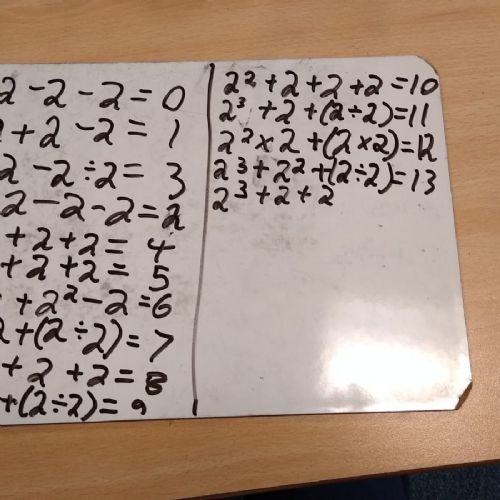 2 - 2 - 2 = 0
+ 2 - 2 = 1
2 - 2 ÷ 2 = 3
2 - 2 - 2 = 2
+ 2 + 2 = 4
+ 2 + 2 = 5
+ 2² - 2 = 6
2 + (2 ÷ 2) = 7
+ 2 + 2 = 8
+ (2 ÷ 2) = 9
2² + 2 + 2 + 2 = 10
2³ + 2 + (2 ÷ 2) = 11
2² × 2 + (2 × 2) = 12
2³ + 2² + (2 ÷ 2) = 13
2³ + 2 + 2